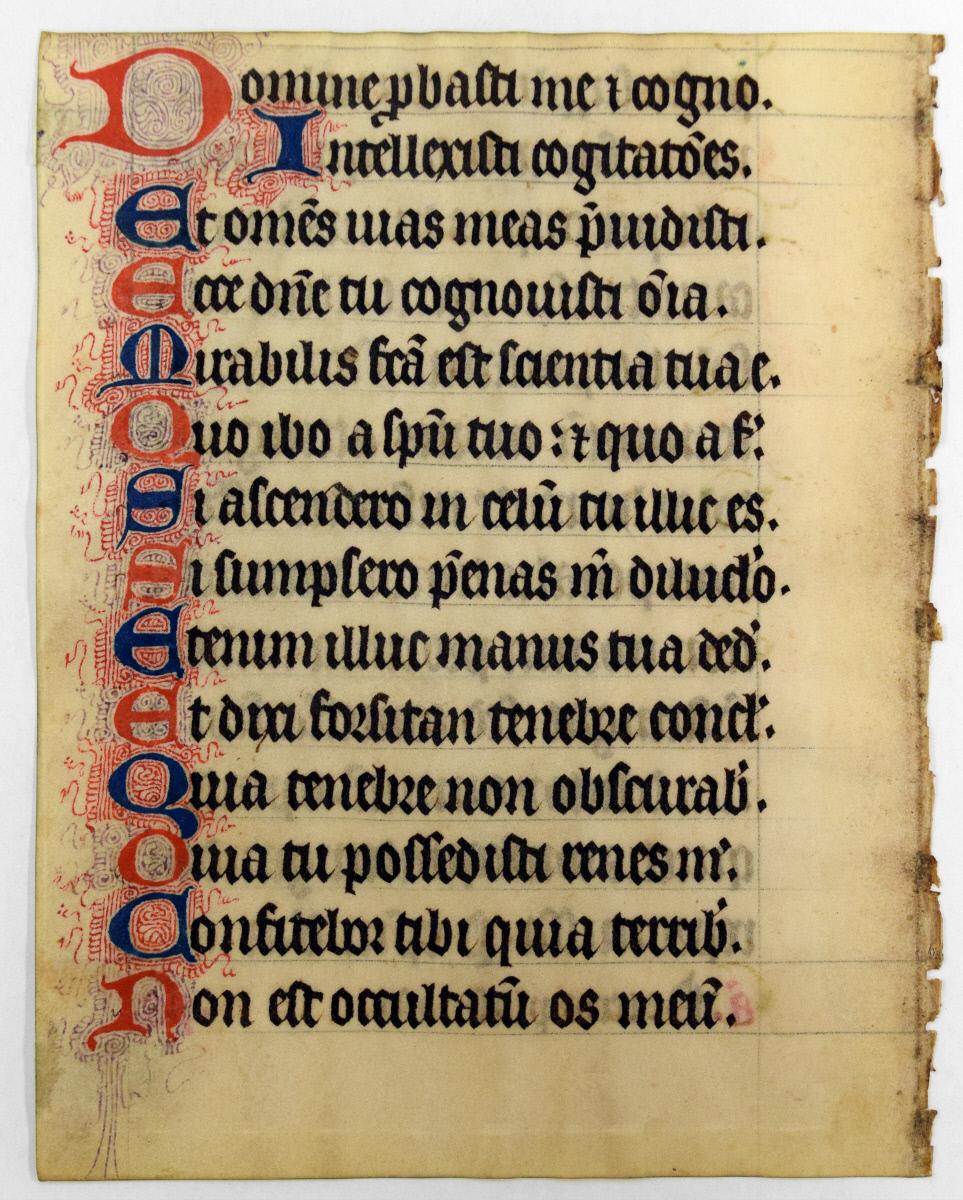 Domine ꝓbasti me ⁊ cogno.
Intellexisti cogitatōes.
Et omēs uias meas p̄uidisti.
Ecce dn̄e tu cognouisti ōia.
Mirabilis fcā est scientia tua e.
Quo ibo a spū tuo : ⁊ quo a f'.
Si ascendero in celū tu illic es.
Si sumpsero p̄enas m̄ diluc'lo.
Etenim illuc manus tua ded'.
Et dixi forsitan tenebre concl'.
Quia tenebre non obscurab'.
Quia tu possedisti renes m'.
Confitebor tibi quia terrib'.
Non est occultatū os meū.